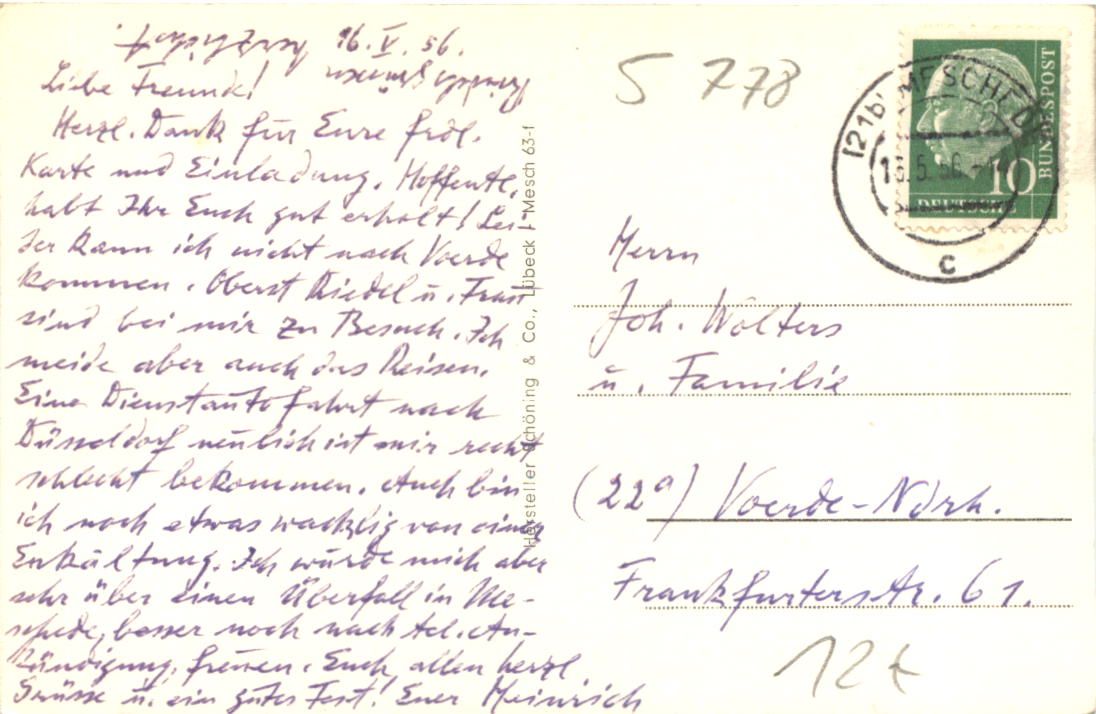 16.V.56.
Liebe Freunde!
Herzl. Dank für Eure fröl.
Karte und Einladung. Hoffentl.
habt Ihr Euch gut erholt! Lei-
der kann ich nicht nach Voerde
kommen. Oberst Riedel u. Frau
sind bei mir zu Besuch. Ich
meide aber auch das Reisen.
Eine Dienstautofahrt nach
Düsseldorf neulich ist mir recht
schlecht bekommen. Auch bin
ich noch etwas wackelig von einer
Erkältung. Ich würde mich aber
sehr über einen Überfall in Me-
schede, besser noch nach tel. An-
kündigung, freuen. Euch allen herzl
Grüsse u. ein gutes Fest! Euer Heinrich
Hersteller Schöning & Co., Lübeck / Mesch 63-f
S 778
(21b) MESCHEDE
5.56
c
10
BUNDESPOST
DEUTSCHE
Herrn
Joh. Wolters
u. Familie
(22a) Voerde-Ndrh.
Frankfurterstr. 61.